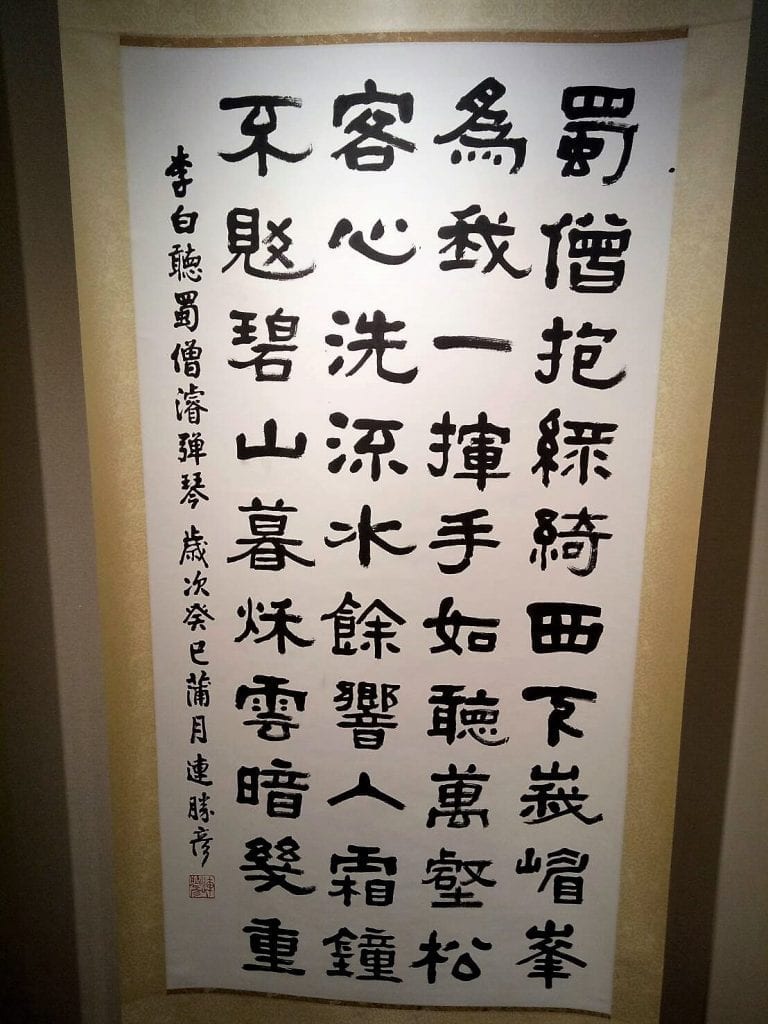 蜀僧抱綠綺西下峩嵋峯
為我一揮手如聽萬壑松
客心洗流水餘響入霜鐘
不覺碧山暮秋雲暗幾重
李白聽蜀僧濬彈琴 歲次癸巳蒲月連勝彥